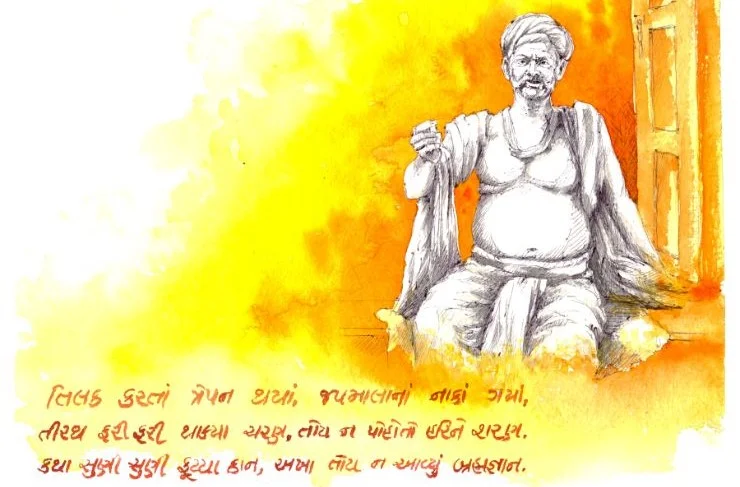 તિલક કરતાં ત્રેપન થયાં, જપમાલાનાં નાકાં ગયાં,
તીરથ ફરી ફરી થાક્યા ચરણ, તોય ન પોહોતો હરિને શરણ.
કથા સુણી સુણી ફૂટ્યા કાન, અખા તોય ન આવ્યું બ્રહ્મજ્ઞાન.